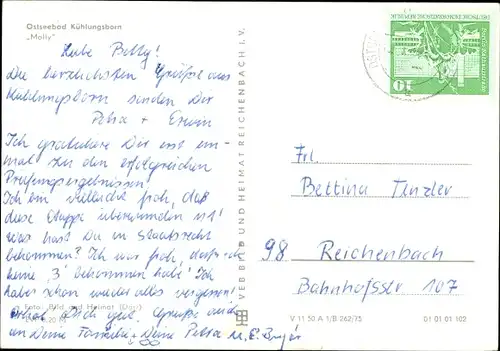 Ostseebad Kühlungsborn
„Molly"
Liebe Betty!
Die herzlichsten Grüße aus
Kühlungsborn senden Dir
Petra + Erwin
Ich gratuliere Dir erst ein-
mal zu den erfolgreichen
Prüfungsergebnissen.
Ich bin vielleicht froh, daß
diese Etappe überwunden ist!
Was hast Du in Staatsrecht
bekommen? Ich war froh, daß ich
keine „3" bekommen habe! Ich
habe schon wieder alles vergessen!
Foto: Bild und Heimat
Erhol Dich gut, Grüße auch
an Deine Familie Deine Petra u. E.
VEB BILD UND HEIMAT REICHENBACH I. V.
DEUTSCHE DEMOKRATISCHE REPUBLIK
10
Frl.
Bettina Tinzler
98 Reichenbach
Bahnhofsstr 107
V 11 50 A 1/B 262/75 01 01 01 102